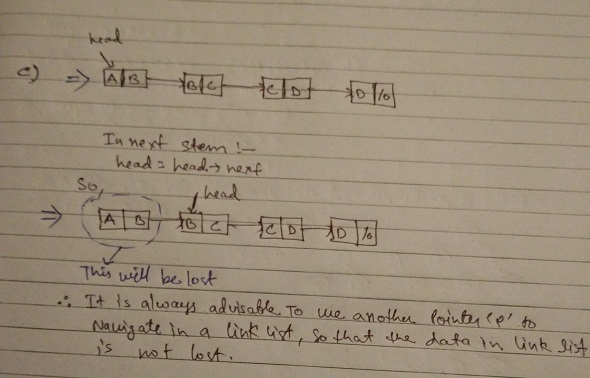 head
c) ⇒ A B → B C → C D → D \0
In next stem :-
head = head → next
So,
head
⇒ A B → B C → C D → D \0
This will be lost
∴ It is always advisable To use another Pointer 'p' to
Navigate in a link list, so that the data in link list
is not lost.